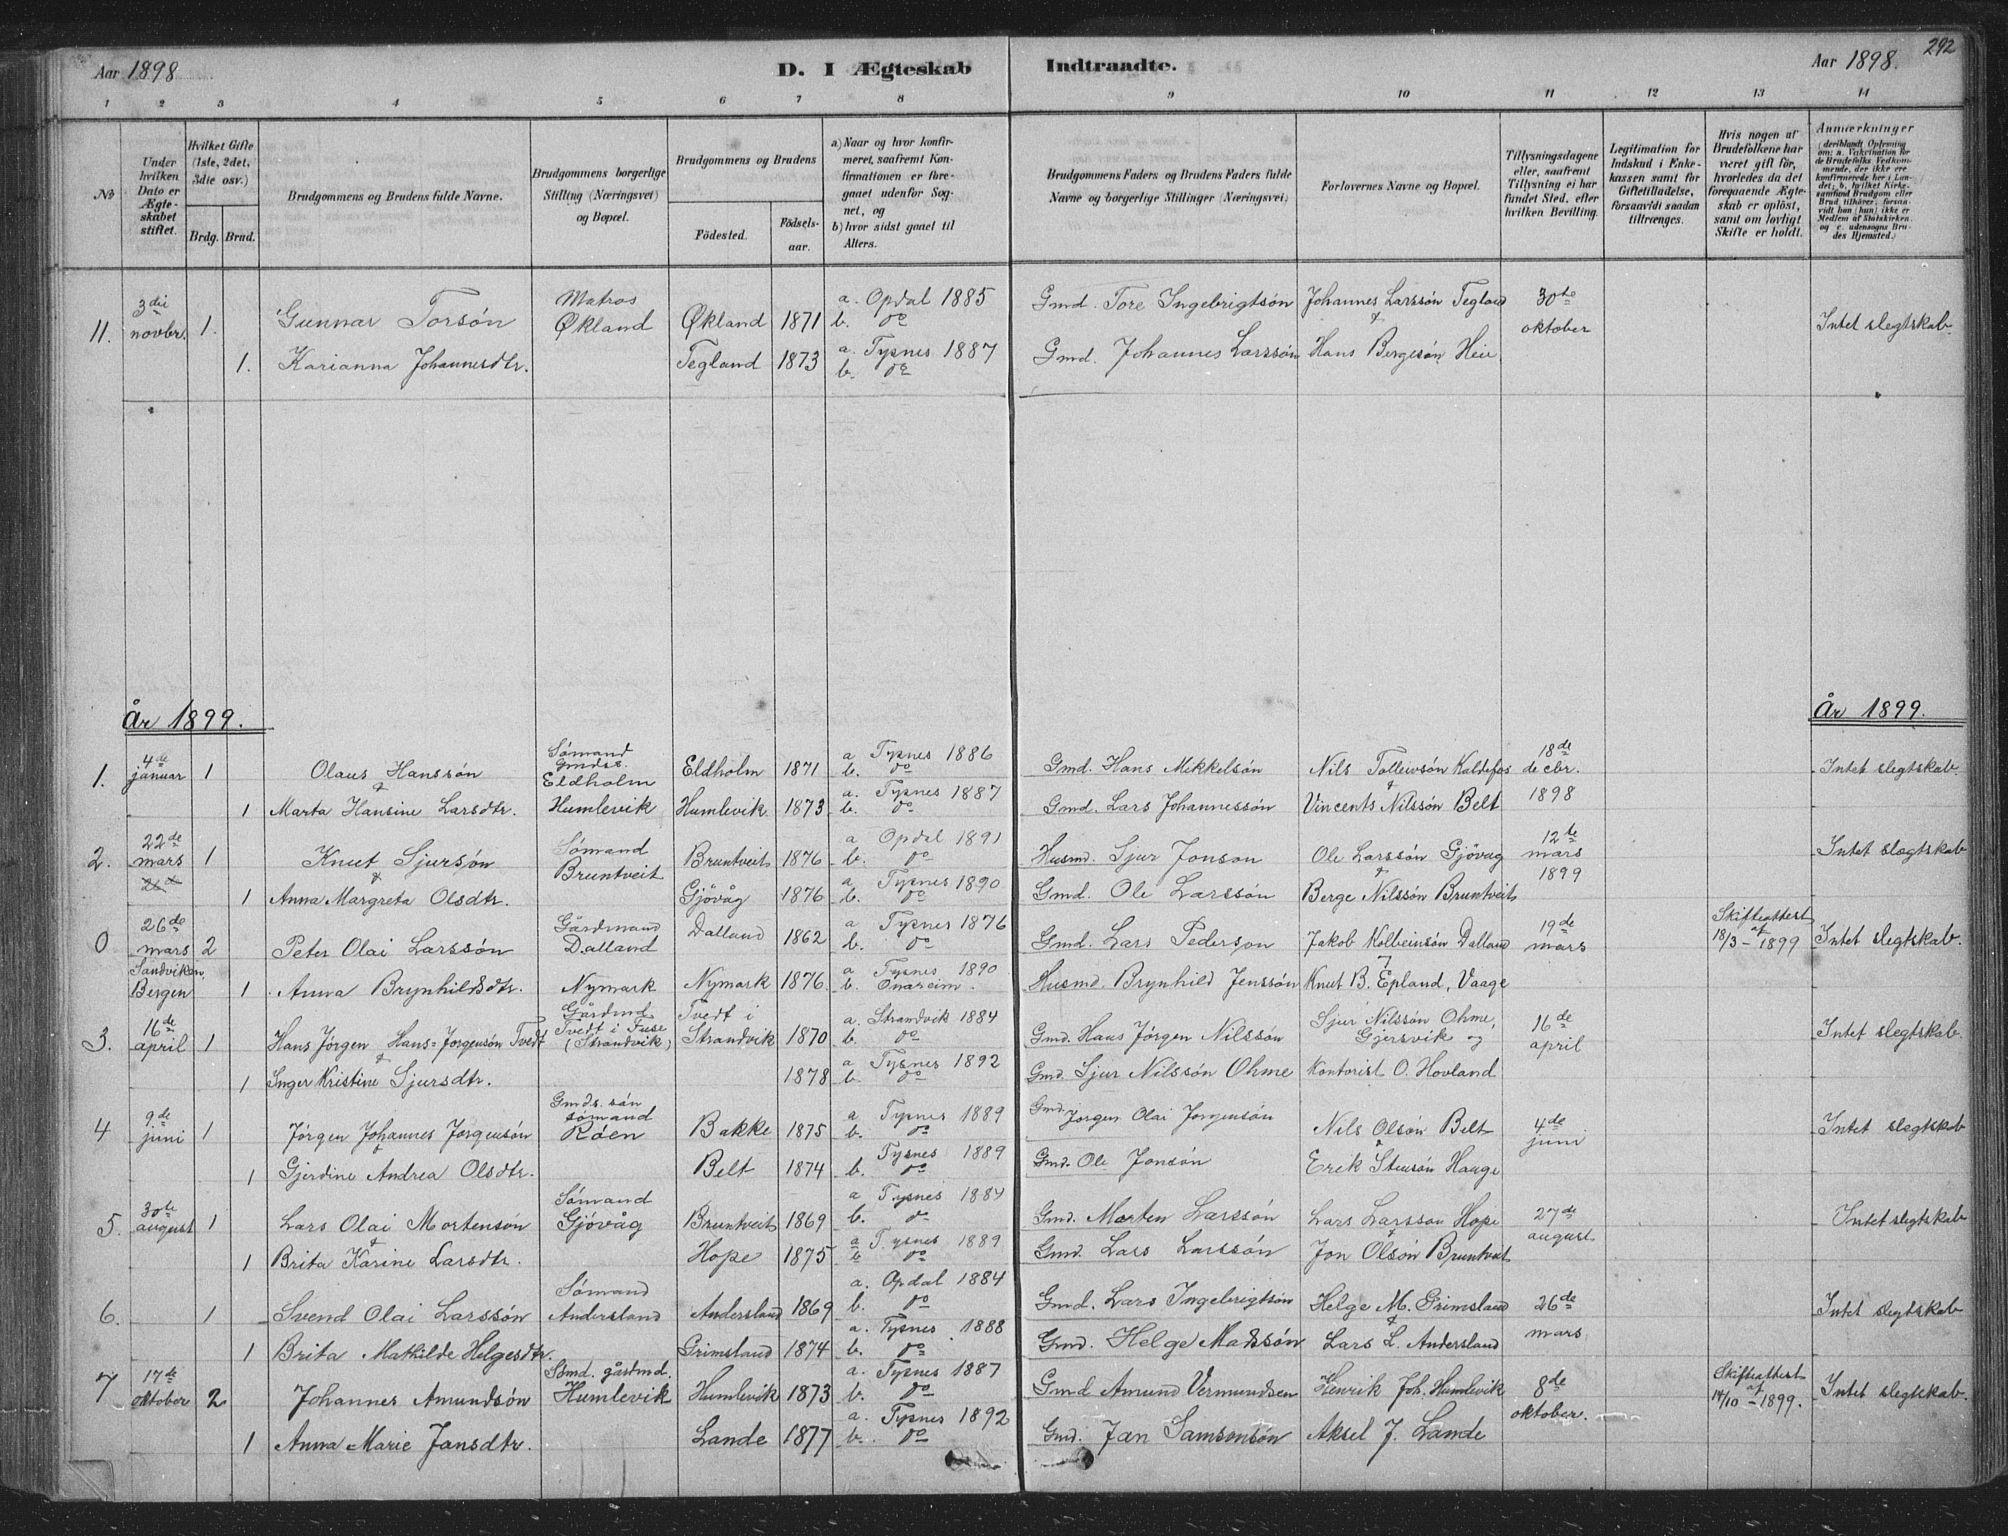 292
Aar 1898
D. I Ægteskab Indtraadte.
Aar 1898.
1 2 3 4 5 6 7 8 9 10 11 12 13 14
№
Under hvilken Dato er Ægteskabet stiftet.
Hvilket Gifte (1ste, 2det, 3die osv.)
Brdg. Brud.
Brudgommens og Brudens fulde Navne.
Brudgommens borgerlige Stilling (Næringsvei) og Bopæl.
Brudgommens og Brudens
Födested. Födselsaar.
a) Naar og hvor konfirmeret, saafremt Konfirmationen er foregaaet udenfor Sognet, og
b) hvor sidst gaaet til Alters.
Brudgommens Faders og Brudens Faders fulde Navne og borgerlige Stillinger (Næringsvei)
Forlovernes Navne og Bopæl.
Tillysningsdagene eller, saafremt Tillysning ei har fundet Sted, efter hvilken Bevilling.
Legitimation for Indskud i Enkekassen samt for Giftetilladelse, forsaavidt saadan tiltrænges.
Hvis nogen af Brudefolkene har været gift før, hvorledes da det foregaaende Ægteskab er opløst, samt om lovligt Skifte er holdt.
Anmærkninger (deriblandt Oplysning om: a. Vakcination for de Brudefolks Vedkommende, der ikke ere konfirmerede her i Landet; b. hvilket Kirkesamfund Brudgom eller Brud tilhører, forsaavidt han (hun) ikke er Medlem af Statskirken. og c. udensogns Brudes Hjemsted.)
11. 3die novbr. 1. Gunnar Torsón Matros Økland Økland 1871 a. Opdal 1885 b. do Gmd. Tore Ingebrigtsón Johannes Larssón Tegland & 30te oktober Intet slegtskab.
1. Karianna Johannesdtr. Tegland 1873 a. Tysnes 1887 b. do Gmd. Johannes Larssón Hans Bergesón Heie
År 1899. År 1899.
1. 4de januar 1 Olaus Hanssón & Sómand Gmdss. Eldholm Eldholm 1871 a Tysnes 1886 b. do Gmd. Hans Mikkelsón Nils Tolleivsón Kaldefos & 18de decbr. 1898 Intet slegtskab.
1 Marta Hansine Larsdtr. Humlevik Humlevik 1873 a. Tysnes 1887 b. do Gmd. Lars Johannessón Vincents Nilssón Belt
2. 22de mars 1 Knut Sjursón & Sómand Bruntveit Bruntveit 1876 a Opdal 1891 b. do Husmd. Sjur Jonson Ole Larssón Gjóvåg & 12te mars 1899 Intet slegtskab
1 Anna Margreta Olsdtr. Gjóvåg 1876 a Tysnes 1890 b. do Gmd. Ole Larssón Berge Nilssón Bruntveit
0 26de mars Sandviken, Bergen 2 Peter Olai Larssón Gårdmand Dalland Dalland 1862 a Tysnes 1876 b. do Gmd. Lars Pederson Jakob Kolbeinsón Dalland 19de mars Skifteattest af 18/3 - 1899 Intet slegtskab.
1 Anna Brynhildsdtr. Nymark Nymark 1876 a Tysnes 1890 b. Onareim. Husmd. Brynhild Jenssón Knut B. Epland, Vaage
3. 16de april 1 Hans Jórgen Hans-Jorgensón Tvedt & Gårdmd Tvedt i Fuse (Strandvik) Tvedt i Strandvik 1870 a. Strandvik 1884 b. do Gmd. Hans Jórgen Nilssón Sjur Nilssón Ohme, Gjersvik og 16de april Intet slegtskab.
1 Inger Kristine Sjursdtr. 1878 a Tysnes 1892 b. do Gmd. Sjur Nilssón Ohme Kontorist O. Hovland
4 9de juni 1 Jórgen Johannes Jorgensón & Gmds. són sómand Róen Bakke 1875 a Tysnes 1889 b. do Gmd. Jorgen Olai Jorgensón Nils Olsón Belt & 4de juni Intet slegtskab
1 Gjerdine Andrea Olsdtr. Belt 1874 a Tysnes 1889 b. do Gmd. Ole Jonsón Erik Stensón Hauge
5. 30te august 1 Lars Olai Mortensón & Sómand Gjóvåg Bruntveit 1869 a Tysnes 1884 b. do Gmd. Morten Larssón Lars Larsson Hope & 27de august Intet slegtskab
1 Brita Karine Larsdtr. Hope 1875 a Tysnes 1889 b do Gmd. Lars Larssón Jon Olsón Bruntveit
6. 1 Svend Olai Larssón Sómand Andersland Andersland 1869 a. Opdal 1884 b. do Gmd. Lars Ingebrigtsón Helge M. Grimsland & 26de mars Intet slegtskab
1 Brita Mathilde Helgesdtr. Grimsland 1874 a. Tysnes 1888 b. do Gmd. Helge Madssón Lars L. Andersland
7 17de oktober 2 Johannes Amundsón gårdmd. Humlevik Humlevik 1873 a. Tysnes 1887 b. do Gmd Amund Vermundsen Henrik Joh. Humlevik 8de oktober. Skifteattest af 14/10 - 1899. Intet slegtskab
1 Anna Marie Jansdtr. Lande 1877 a. Tysnes 1892 b. do Gmd. Jan Samsonsón Aksel J. Lande